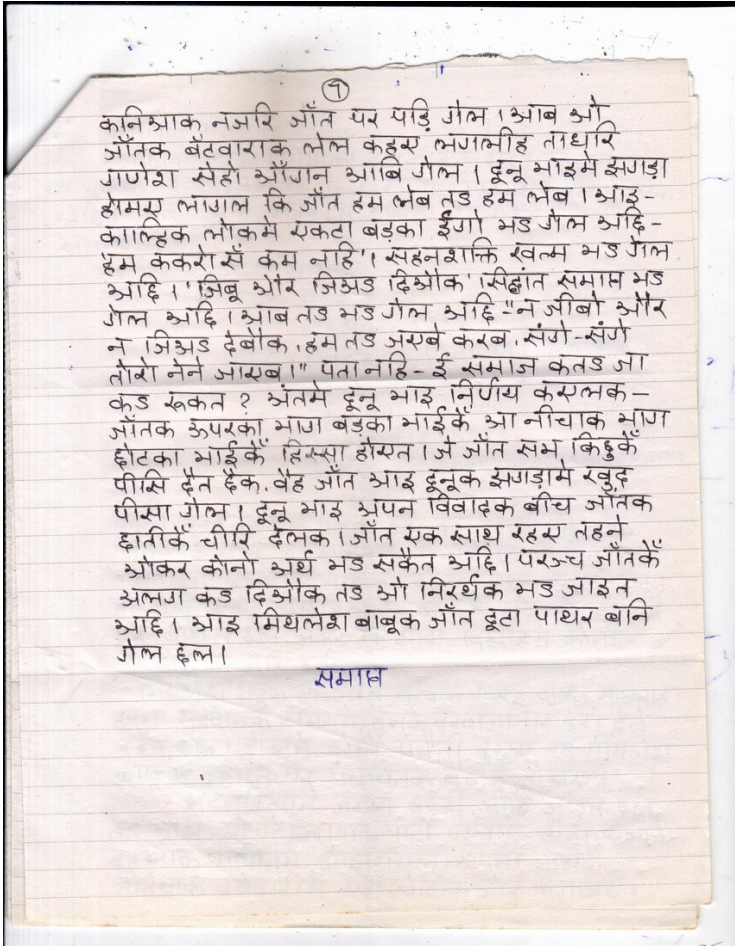 ७
कनिआक नजरि जाँत पर पड़ि गेल । आब ओ
जाँतक बँटवाराक लेल कहए लगलीह ताधरि
गणेश सेहो आँगन आबि गेल । दूनू भाइमे झगड़ा
होमए लागल कि जाँत हम लेब तऽ हम लेब । आइ-
काल्हिक लोकमे एकटा बड़का ईगो भऽ गेल अछि-
हम ककरो सँ कम नहि' । सहनशक्ति खत्म भऽ गेल
अछि । 'जिबू और जिअऽ दिऔक' । सिद्धांत समाप्त भऽ
गेल अछि । आब तऽ भऽ गेल अछि-"न जीबो और
न जिअऽ देबौक, हम तऽ जएबे करब, संगे-संगे
तोरो नेने जाएब ।" पता नहि - ई समाज कतऽ जा
कऽ रूकत ? अंतमे दूनू भाइ निर्णय कएलक -
जाँतक ऊपरका भाग बड़का भाईकेँ आ नीचाक भाग
छोटका भाईकेँ हिस्सा होएत । जे जाँत सभ किछुकेँ
पीसि दैत छैक, वैह जाँत आइ दूनूक झगड़ामे खुद
पीसा गेल । दूनू भाइ अपन विवादक बीच जाँतक
छातीकेँ चीरि देलक । जाँत एक साथ रहए तहने
ओकर कोनो अर्थ भऽ सकैत अछि । परञ्च जाँतकेँ
अलग कऽ दिऔक तऽ ओ निरर्थक भऽ जाइत
अछि । आइ मिथलेश बाबूक जाँत टूटा पाथर बनि
गेल छल ।
समाप्त